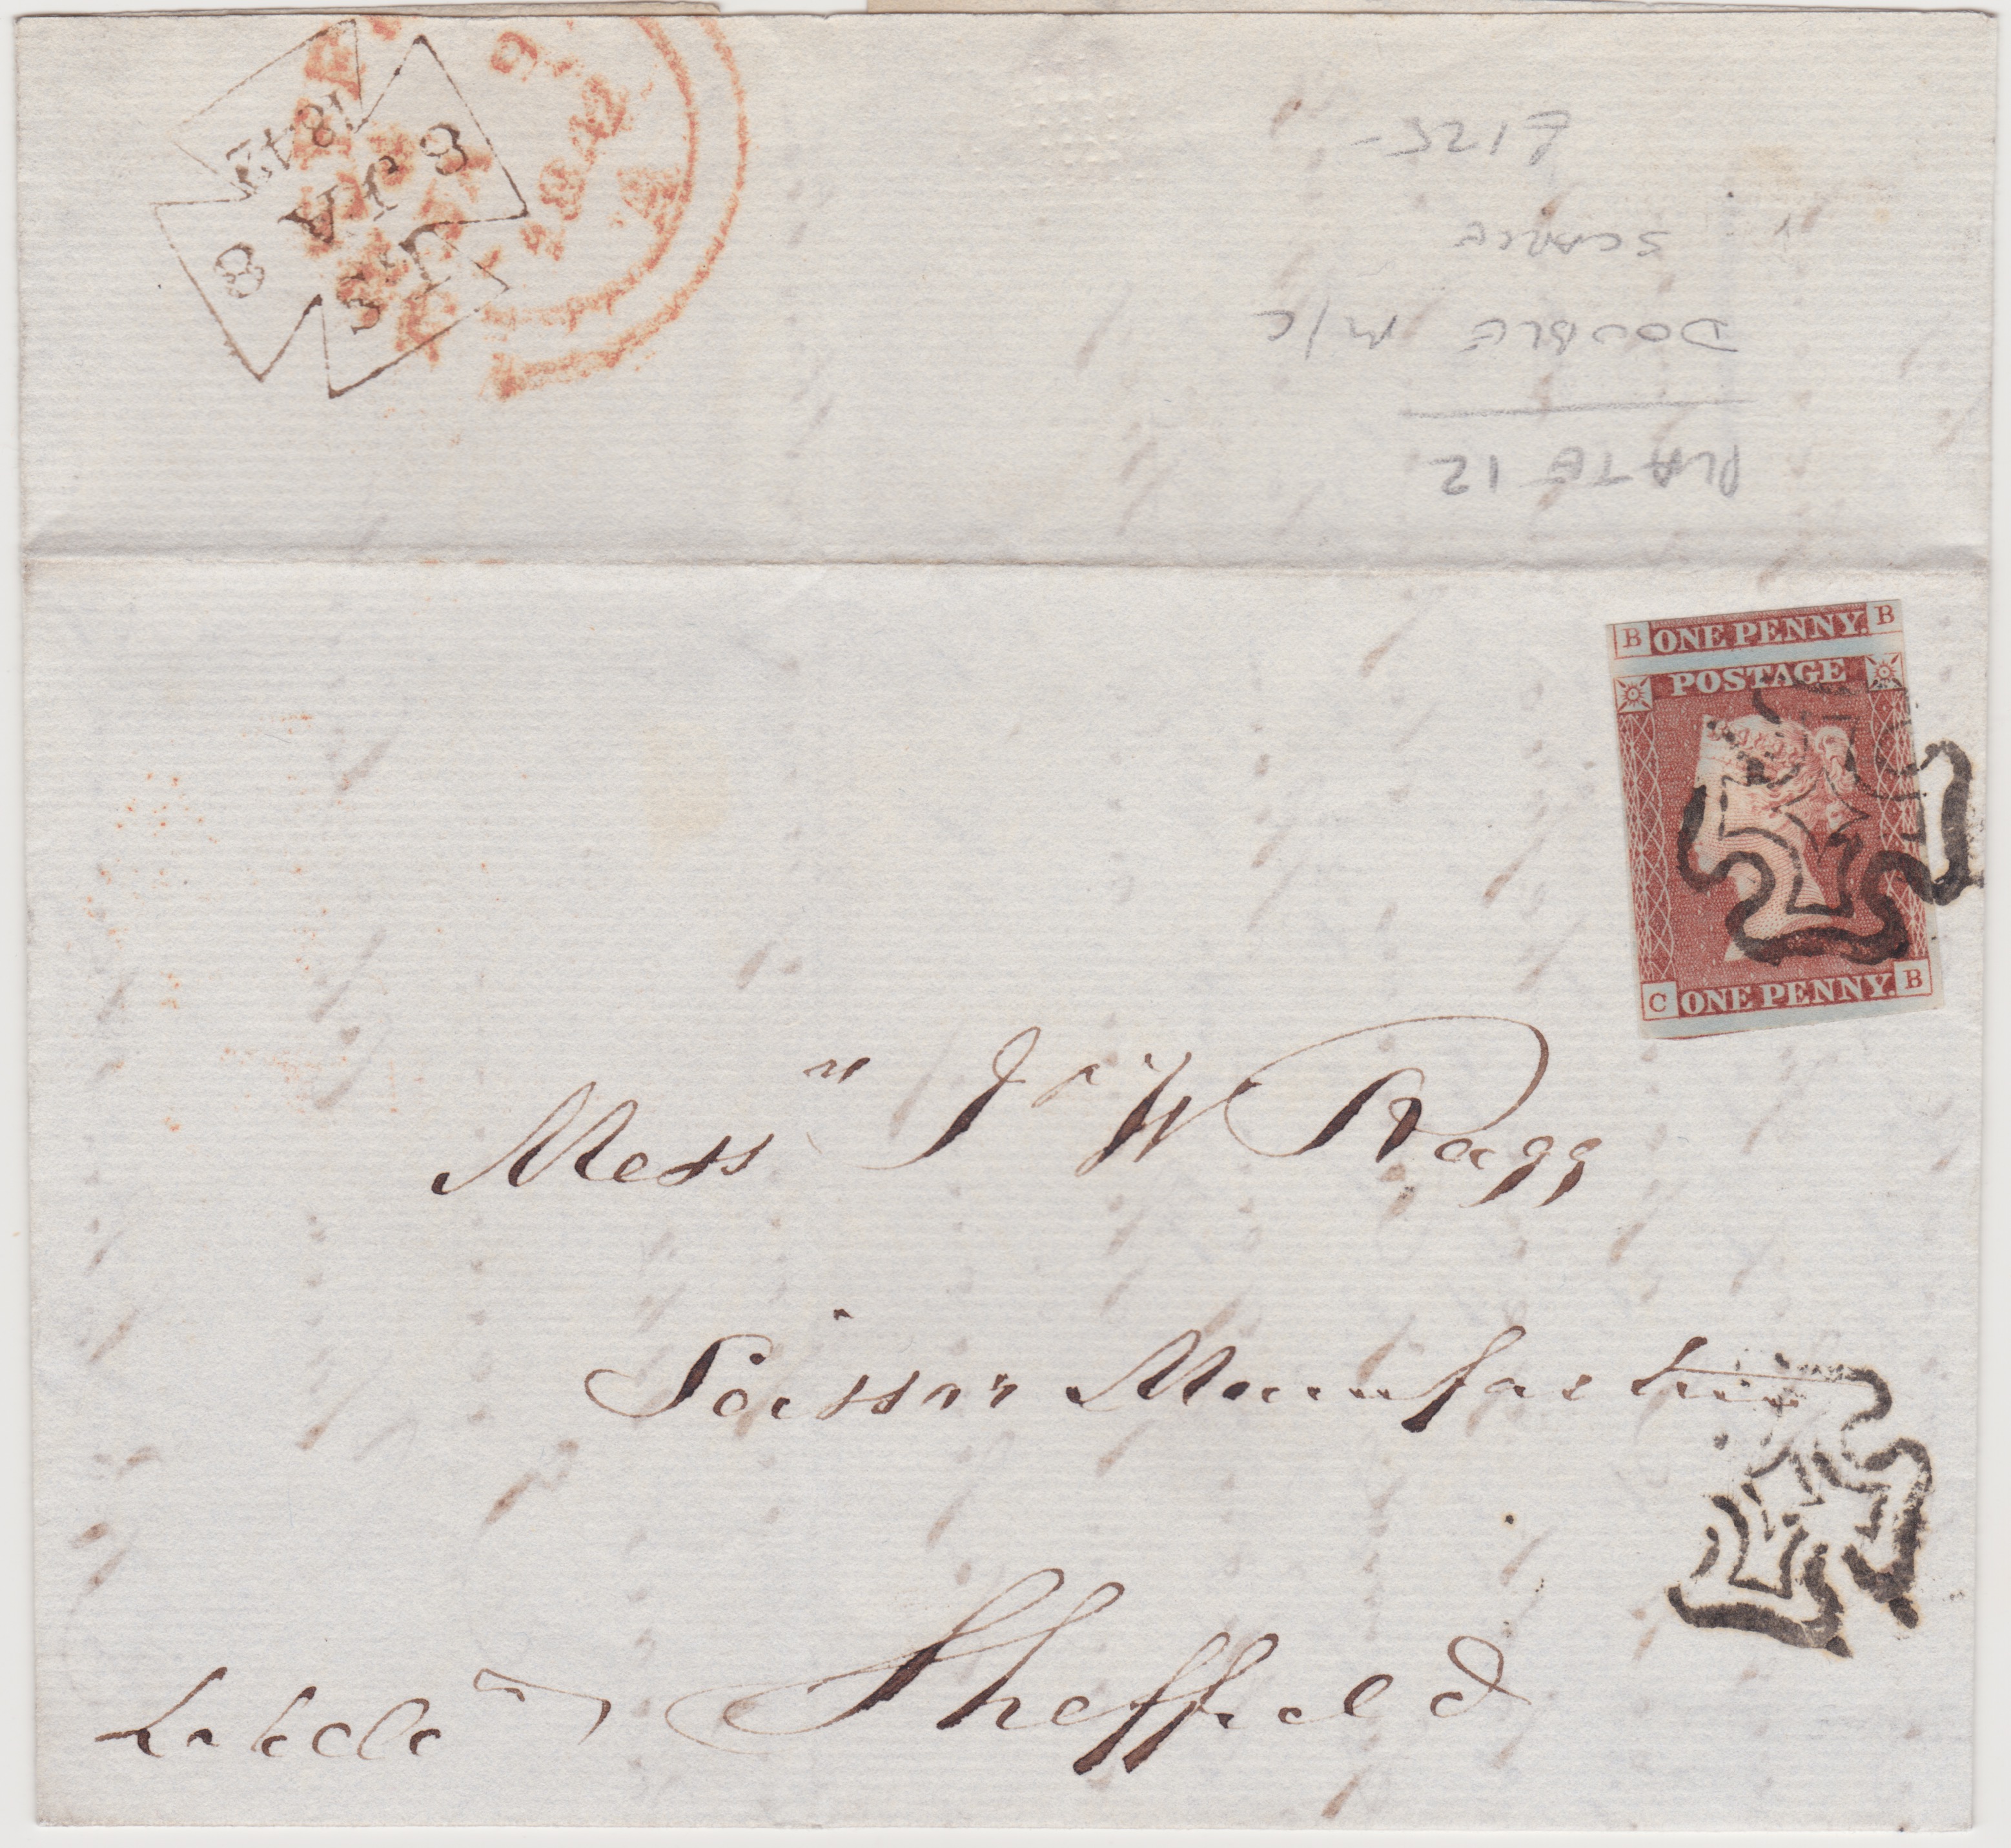 1842
8 JA 8
LS
1842
A
£125-
SCARCE
DOUBLE M/C
PLATE 12
B ONE PENNY. B
POSTAGE
C ONE PENNY. B
Messrs J & W Ragg
Scissor Manufacturers
Sheffield